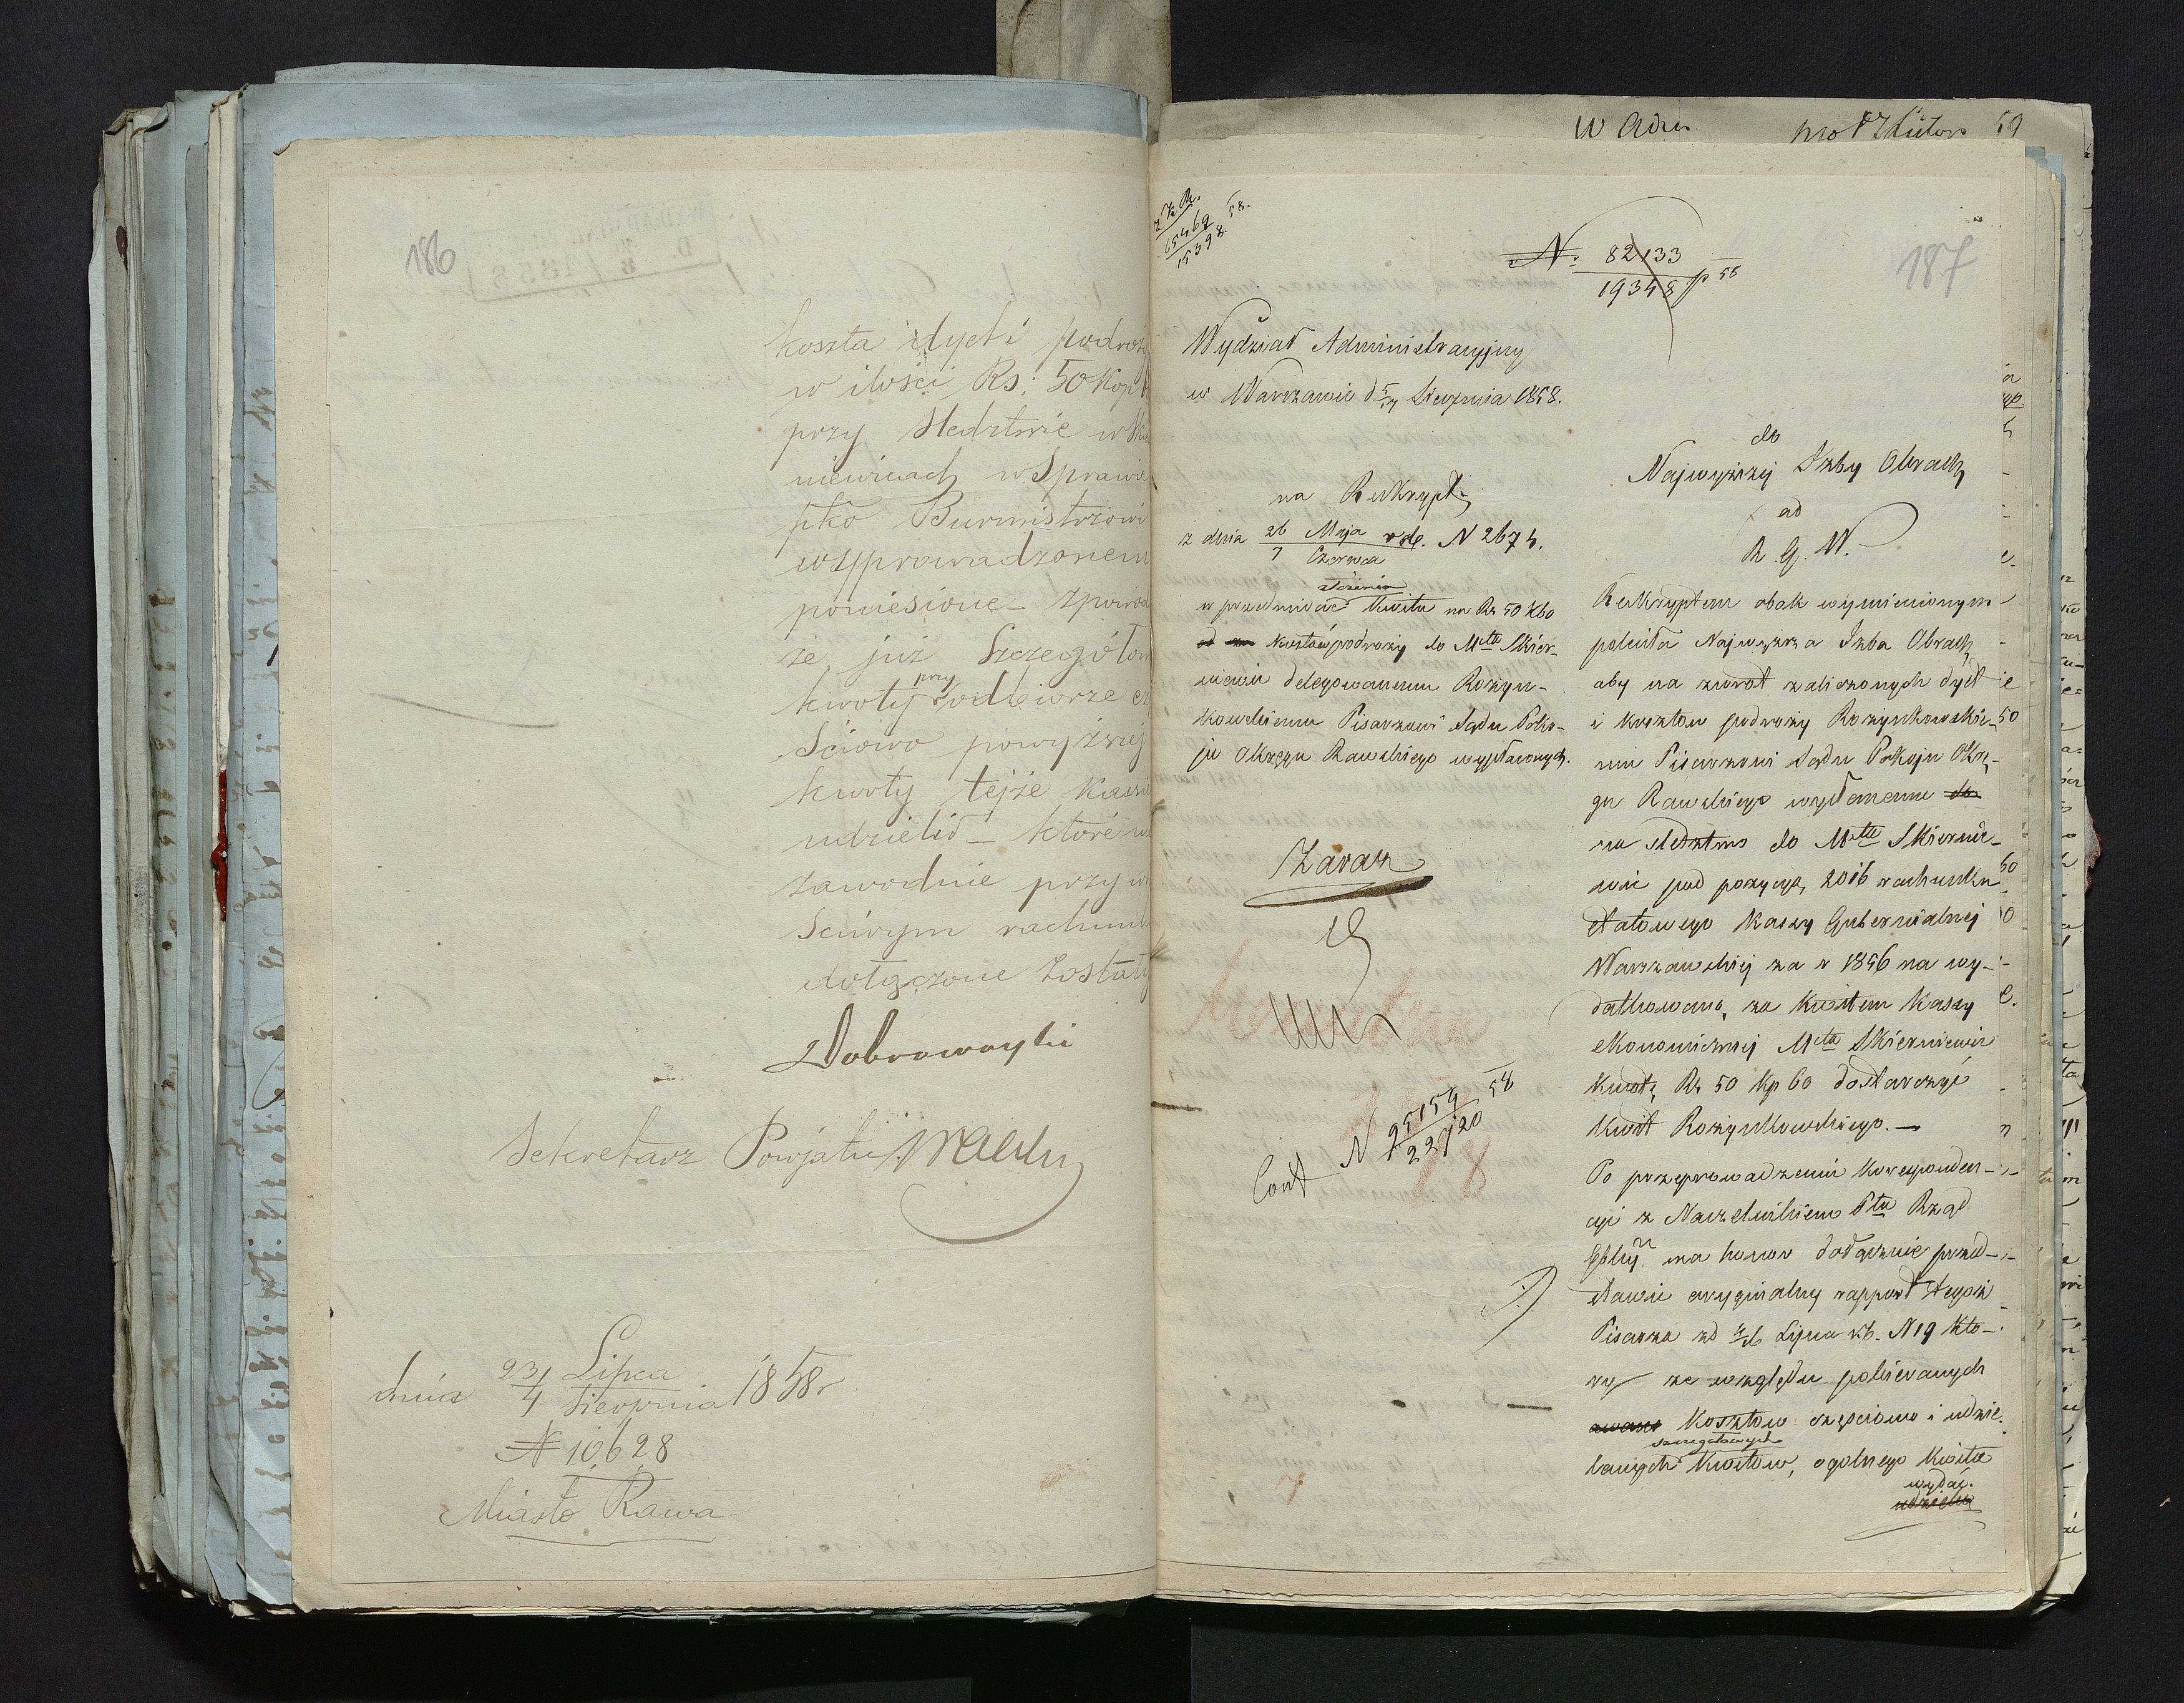 186
koszta dyet i podroży
w ilości Rs: 50 Kop
przy śledztwie w Skier
niewicach w Sprawie
pko Burmistrzowi
wyprowadzonem
poniesione – zpowodu
że już Szczegółowe
kwoty przy odbiorze czę
ściowo powyższej
kwoty tejże Kassie
udzielił – które nie
zawodnie przy wła
ściwym rachunku
dołączone zostały
Dobrowolski
Sekretarz Powiatu
dnia 23/4 Lipca Sierpnia 1858 r
N 10,628
Miasto Rawa
W Adm
59
65469
15398 58.
N. 82133
19348 p 58
187
Wydział Administracyjny
w Warszawie d 5/17 Sierpnia 1858.
na Reskrypt
z dnia 26 Maja 7 Czerwca rb. N 2674.
w przedmiocie złożenia kwitu na Rs 50 k 60
kosztów podroży do Mta Skier-
niewic delegowanemu Rożyn-
kowskiemu Pisarzowi Sądu Poko-
ju Okręgu Rawskiego wypłaconych.
Zaraz
Cont N 95159
22720 58
do
Najwyższej Izby Obrach
ad
R. G. W.
Reskryptem obok wymienionym
poleciła Najwyższa Izba Obrach
aby na zwrot zaliczonych dyet
i kosztow podroży Rożynkowskie-
mu Pisarzowi Sądu Pokoju Okrę-
gu Rawskiego wysłanemu do
na śledztwo do Mta Skiernie-
wic pod pozycyą 2016 rachunku
etatowego Kassy Gubernialnej
Warszawskiej za r 1856 na wy-
datkowano, za kwitem Kassy
ekonomicznej Mta Skierniewic
kwotę Rs 50 kp 60 dostarczyć
kwit Rożynkowskiego. –
Po przeprowadzeniu korresponden-
cyi z Naczelnikiem Ptu Rząd
Gblny ma honor dołącznie przed-
stawić oryginalny rapport tegoż
Pisarza zd 4/16 Lipca rb. N 19 kto-
ry ze względu pobieranych
kosztow częściowo i udzie-
lanych szczegółowych kwitow, ogolnego kwitu
wydać.